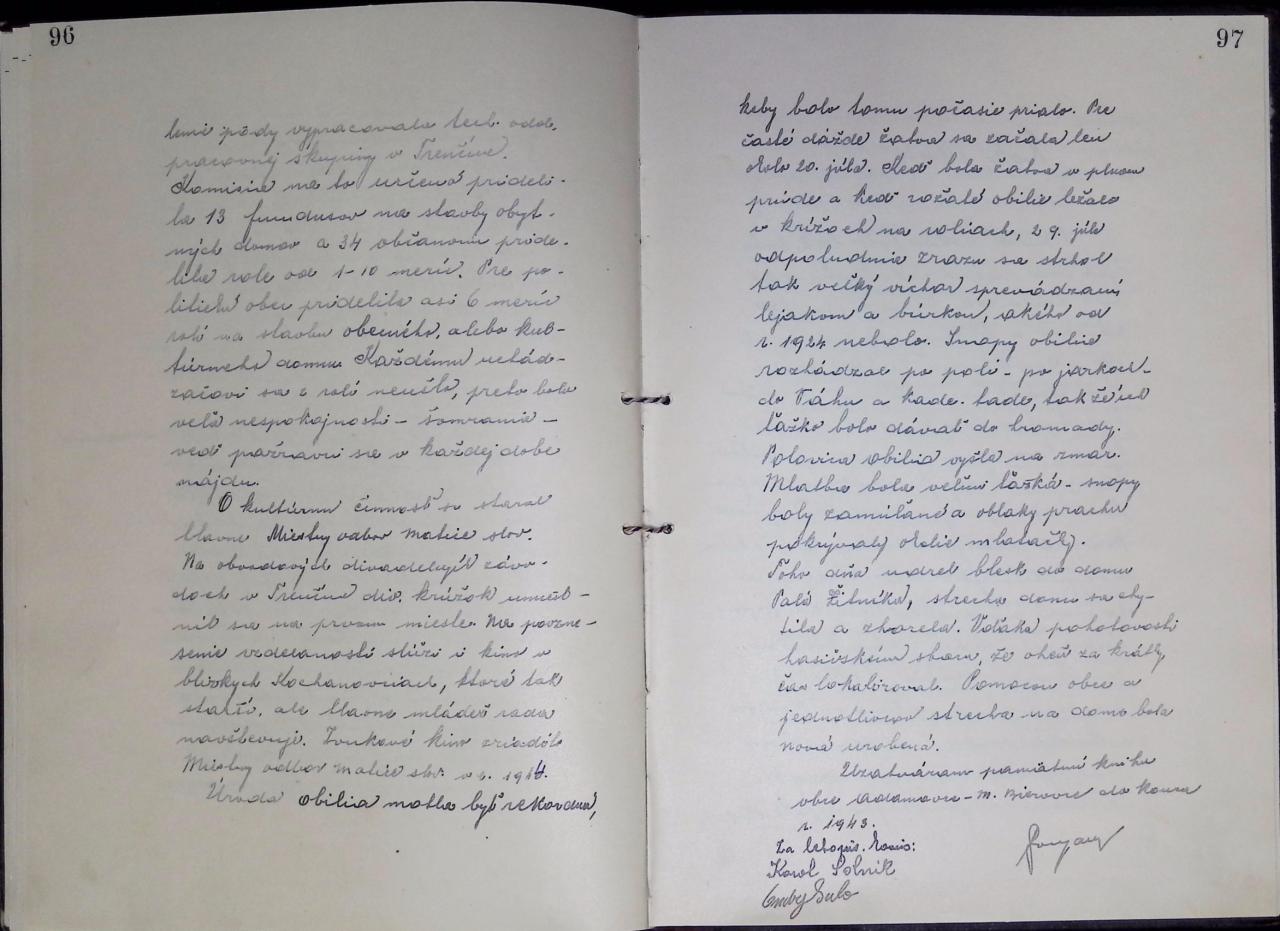 96
lenie pôdy vypracovala tech. odob.
pracovnej skupiny v Trenčíne.
Komisia na to určená prideli-
la 13 fundusov na stavby obyt-
ných domov a 34 občanom pride-
lila role od 1-10 meríc. Pre po-
litickú obec pridelila asi 6 meríc
rolí na stavbu obecného, alebo kul-
túrneho domu. Každému uchád-
začovi sa z rolí neušlo, preto bolo
veľa nespokojnosti - šomrania -
veď pažravci sa v každej dobe
nájdu.
O kultúrnu činnosť sa staral
hlavne Miestny odbor Matice slov.
Na obvodových divadelných závo-
doch v Trenčíne div. krúžok umiest-
nil sa na prvom mieste. Na povzne-
senie vzdelanosti slúži i kino v
blízkych Kochanovciach, ktoré tak
starší, ale hlavne mládež rada
navštevuje. Zvukové kino zriadil
Miestny odbor Matice slov. v r. 194
Úroda obilia mohla byť rekordná,
97
keby bolo tomu počasie prialo. Pre
časté dážde žatva sa začala len
okolo 20. júla. Keď bola žatva v plnom
prúde a keď zožaté obilie ležalo
v krížoch na roliach, 29. júla
odpoludnia zrazu sa strhol
tak veľký víchor sprevádzaný
lejakom a búrkou, akého od
r. 1924 nebolo. Snopy obilia
rozhádzal po poli - po jarkoch -
do Váhu a kade-tade, takže ich
ťažko bolo dávať do hromady.
Polovica obilia vyšla na zmar.
Mlatba bola veľmi ťažká - snopy
boly zamúlané a oblaky prachu
pokrývaly okolie mlatačky.
Toho dňa udrel blesk do domu
Pala Žitníka, strecha domu sa chy-
tila a zhorela. Vďaka pohotovosti
hasičskému sboru, že oheň za krátky
čas lokalizoval. Pomocou obce a
jednotlivcov strecha na dome bola
nová urobená.
Uzatváram pamätnú knihu
obce Adamovce - M. Bierovce do konca
r. 1943.
Za letopis. komis:
Karol Solník